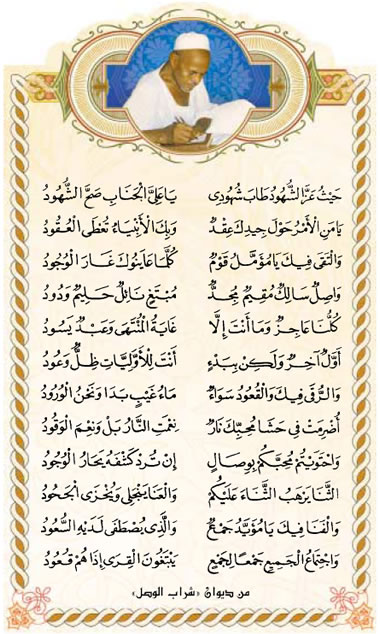 حَيْثُ عَزَّ الشُّهُودُ طَابَ شُهُودِى يَا عَلِىَّ الْجَنَابِ صَحَّ الشُّهُودُ
يَا مَنِ الْأَمْرُ حَوْلَ جِيدِكَ عِقْدٌ وَبِكَ الْأَنْبِيَاءُ تُعْطَى الْعُقُودُ
وَالْتَقَى فِيكَ يَا مُؤَمَّلُ قَوْمٌ كُلَّمَا عَايَنُوكَ غَارَ الْوُجُودُ
وَاصِلٌ سَالِكٌ مُقِيمٌ مُجِدٌّ مُبْتَغٍ نَائِلٌ حَلِيمٌ وَدُودُ
كُلُّنَا عَاجِزٌ وَمَا أَنْتَ إِلَّا غَايَةُ الْمُنْتَهَى وَعَبْدٌ يَسُودُ
أَوَّلٌ آخِرٌ وَلَكِنْ بِبَدْءٍ أَنْتَ لِلْأَوَّلِيَّاتِ ظِلٌّ وَعُودُ
وَالرُّقَى فِيكَ وَالْقُعُودُ سَوَاءٌ مَاءُ غَيْبٍ بَدَا وَنَحْنُ الْوُرُودُ
أُضْرِمَتْ فِى حَشَا مُحِبِّكَ نَارٌ نِعْمَتِ النَّارُ بَلْ وَنِعْمَ الْوَقُودُ
وَاحْتَوَيْتُمْ مُحِبَّكُمْ بِوِصَالٍ إِنْ تُرِدْ كَشْفَهُ يَحَارُ الْوُجُودُ
الثَّنَا يَرْهَبُ الثَّنَاءَ عَلَيْكُمْ وَالْعَنَا يَنْجَلِى وَيُخْزَى الْجَحُودُ
وَالْفَنَا فِيكَ يَا مُؤَيَّدُ جَمْعٌ وَالَّذِى يُصْطَفَى لَدَيْهِ السُّعُودُ
وَاجْتِمَاعُ الْجَمِيعِ جَمْعًا لِجَمْعٍ يَبْتَغُونَ الْقِرَى إِذَا هُمْ قُعُودُ
من ديوان «شراب الوصل»